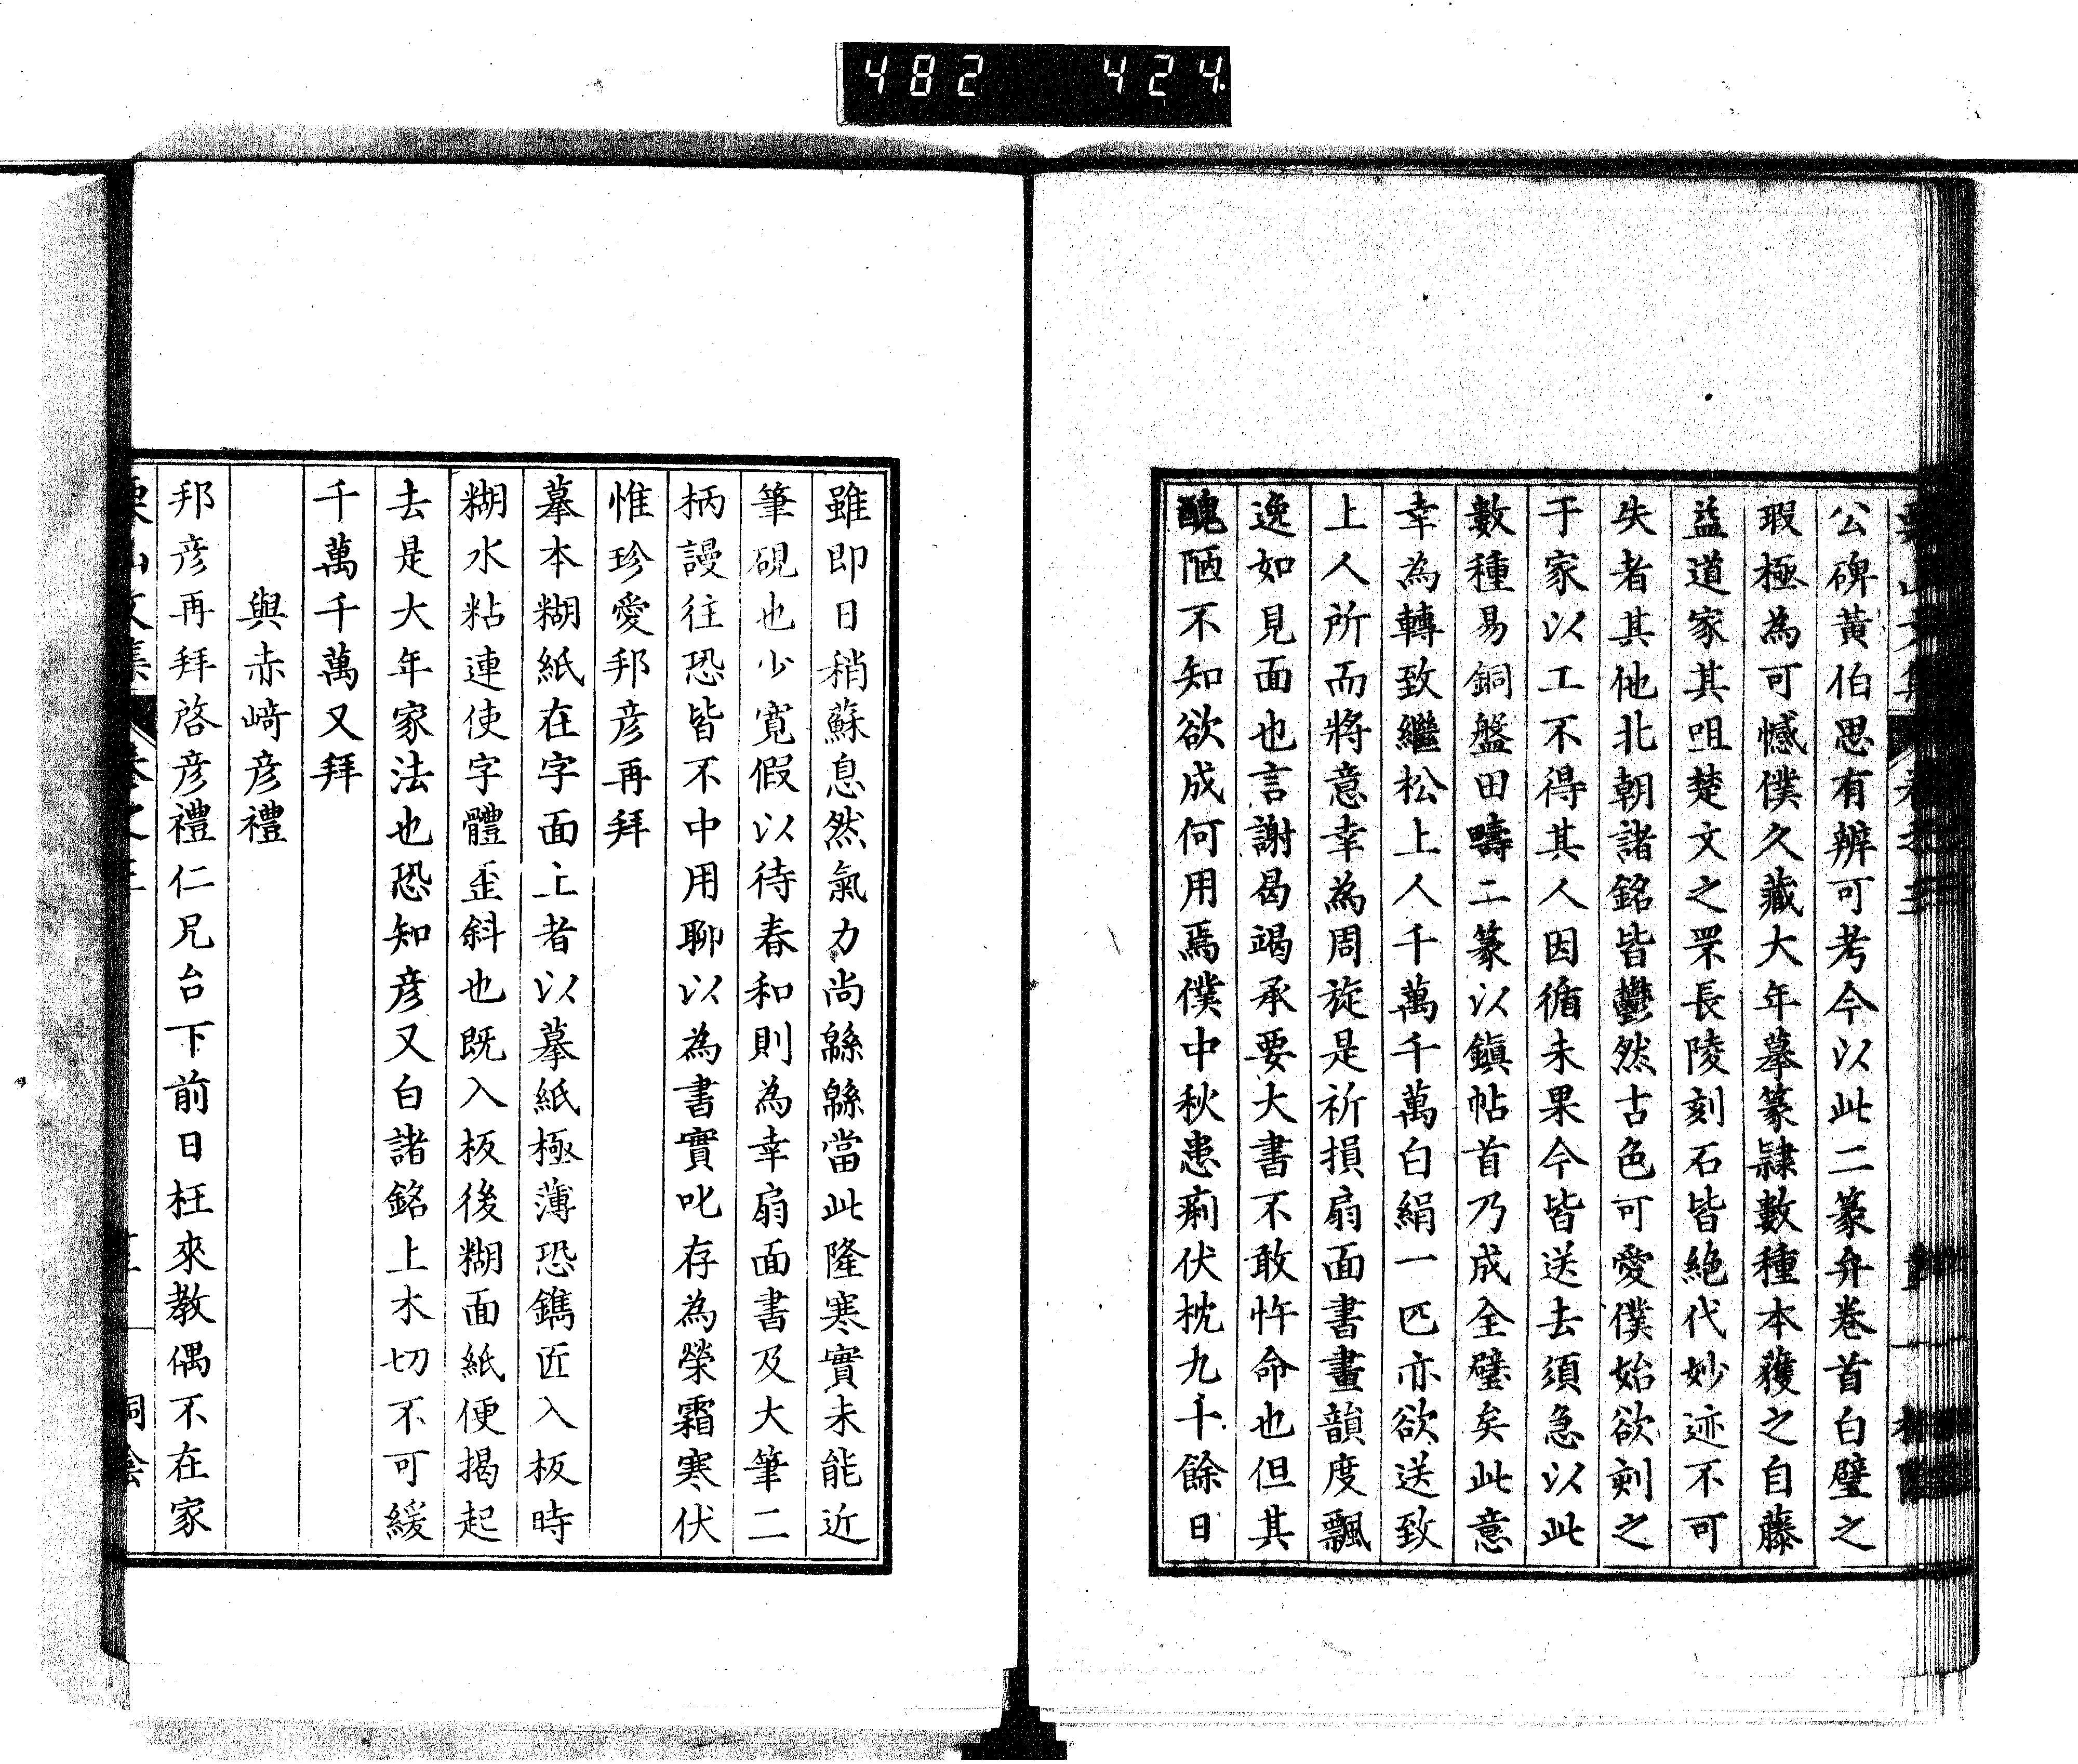 482 424
公碑黃伯思有辨可考今以此二篆弁卷首白璧之
瑕極為可憾僕久藏大年摹篆隷數種本獲之自藤
益道家其咀楚文之罘長陵刻石皆絶代妙迹不可
失者其他北朝諸銘皆鬱然古色可愛僕始欲刻之
于家以工不得其人因循未果今皆送去須急以此
數種易銅盤田疇二篆以鎭帖首乃成全璧矣此意
幸為轉致繼松上人千萬千萬白絹一匹亦欲送致
上人所而將意幸為周旋是祈損扇面書畫韻度飄
逸如見面也言謝曷竭承要大書不敢忤命也但其
醜陋不知欲成何用焉僕中秋患痢伏枕九十餘日
雖即日稍蘇息然氣力尚緜緜當此隆寒實未能近
筆硯也少寛假以待春和則為幸扇面書及大筆二
柄謾往恐皆不中用聊以為書實叱存為榮霜寒伏
惟珍愛邦彦再拜
摹本糊紙在字面上者以摹紙極薄恐鐫匠入板時
糊水粘連使字體歪斜也既入板後糊面紙便揭起
去是大年家法也恐知彦又白諸銘上木切不可緩
千萬千萬又拜
與赤﨑彦禮
邦彦再拜啓彦禮仁兄台下前日枉來教偶不在家